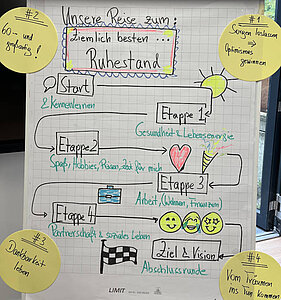 Unsere Reise zum:
Ziemlich besten ...
Ruhestand
#2
60 – und
großartig!
#1
Sorgen loslassen
⇒
Optimismus
gewinnen
Start
& Kennenlernen
Etappe 1
Gesundheit & Lebensenergie
Etappe 2
Spaß, Hobbies, Reisen, Zeit für mich
Etappe 3
Arbeit, Wohnen, Finanzen
Etappe 4
Partnerschaft & soziales Leben
Ziel & Vision
Abschlussrunde
#3
Dankbarkeit
leben
#4
Vom Träumen
ins Tun kommen
LIMIT